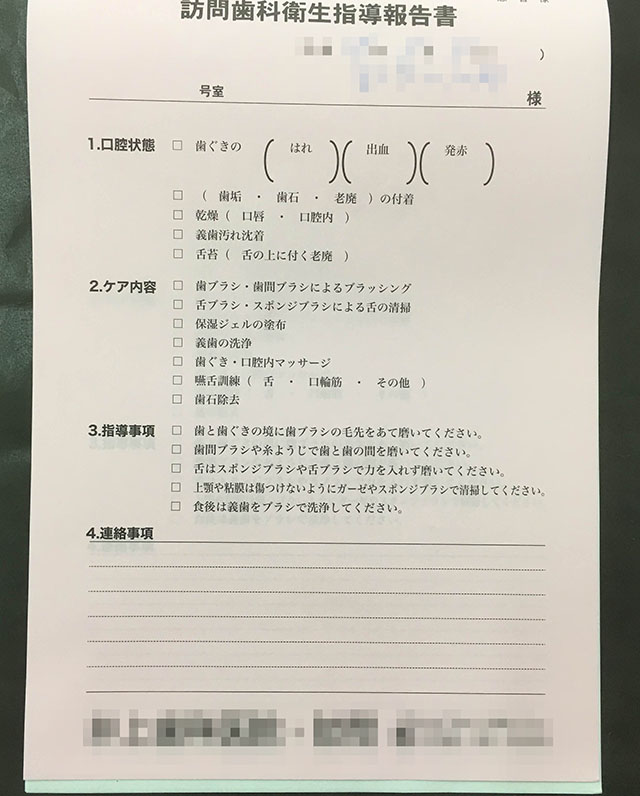 訪問歯科衛生指導報告書
)
号室 様
1.口腔状態 □ 歯ぐきの ( はれ )( 出血 )( 発赤 )
□ ( 歯垢 ・ 歯石 ・ 老廃 )の付着
□ 乾燥( 口唇 ・ 口腔内 )
□ 義歯汚れ沈着
□ 舌苔( 舌の上に付く老廃 )
2.ケア内容 □ 歯ブラシ・歯間ブラシによるブラッシング
□ 舌ブラシ・スポンジブラシによる舌の清掃
□ 保湿ジェルの塗布
□ 義歯の洗浄
□ 歯ぐき・口腔内マッサージ
□ 嚥舌訓練( 舌 ・ 口輪筋 ・ その他 )
□ 歯石除去
3.指導事項 □ 歯と歯ぐきの境に歯ブラシの毛先をあて磨いてください。
□ 歯間ブラシや糸ようじで歯と歯の間を磨いてください。
□ 舌はスポンジブラシや舌ブラシで力を入れず磨いてください。
□ 上顎や粘膜は傷つけないようにガーゼやスポンジブラシで清掃してください。
□ 食後は義歯をブラシで洗浄してください。
4.連絡事項